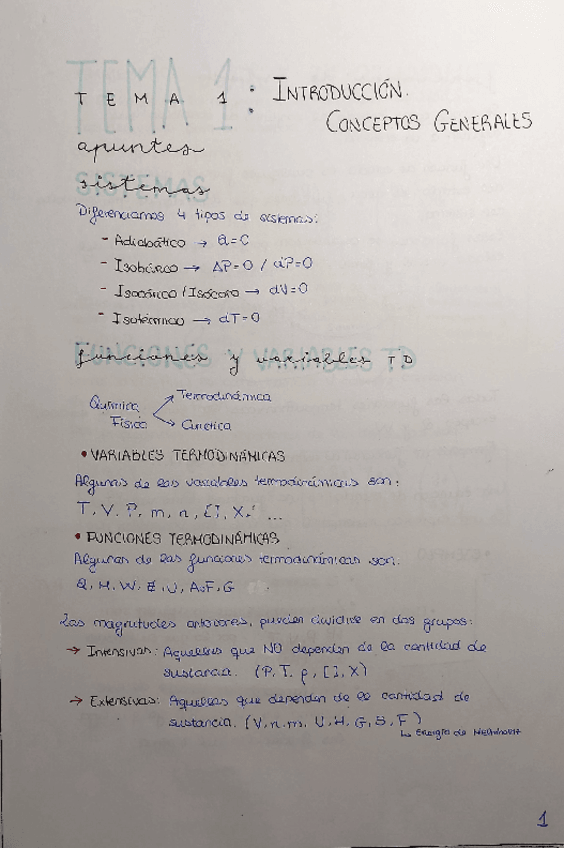 TEMA 1: INTRODUCCIÓN.
CONCEPTOS GENERALES
apuntes
sistemas
SISTEMAS
Diferenciamos 4 tipos de sistemas:
- Adiabático → Q=C
- Isobárico → ΔP=0 / dP=0
- Isocórico / Isócoro → dV=0
- Isotérmico → dT=0
funciones y variables TD
FUNCIONES Y VARIABLES TD
Química Física → Termodinámica
→ Cinética
• VARIABLES TERMODINÁMICAS
Algunas de las variables termodinámicas son:
T, V, P, m, n, [], X, ...
• FUNCIONES TERMODINÁMICAS
Algunas de las funciones termodinámicas son:
Q, H, W, E, U, A, F, G
Las magnitudes anteriores, pueden dividirse en dos grupos:
→ Intensivas: Aquellas que NO dependen de la cantidad de
sustancia. (P, T, ρ, [], X)
→ Extensivas: Aquellas que dependen de la cantidad de
sustancia. (V, n, m, U, H, G, S, F)
↳ Energía de Helmholtz
1